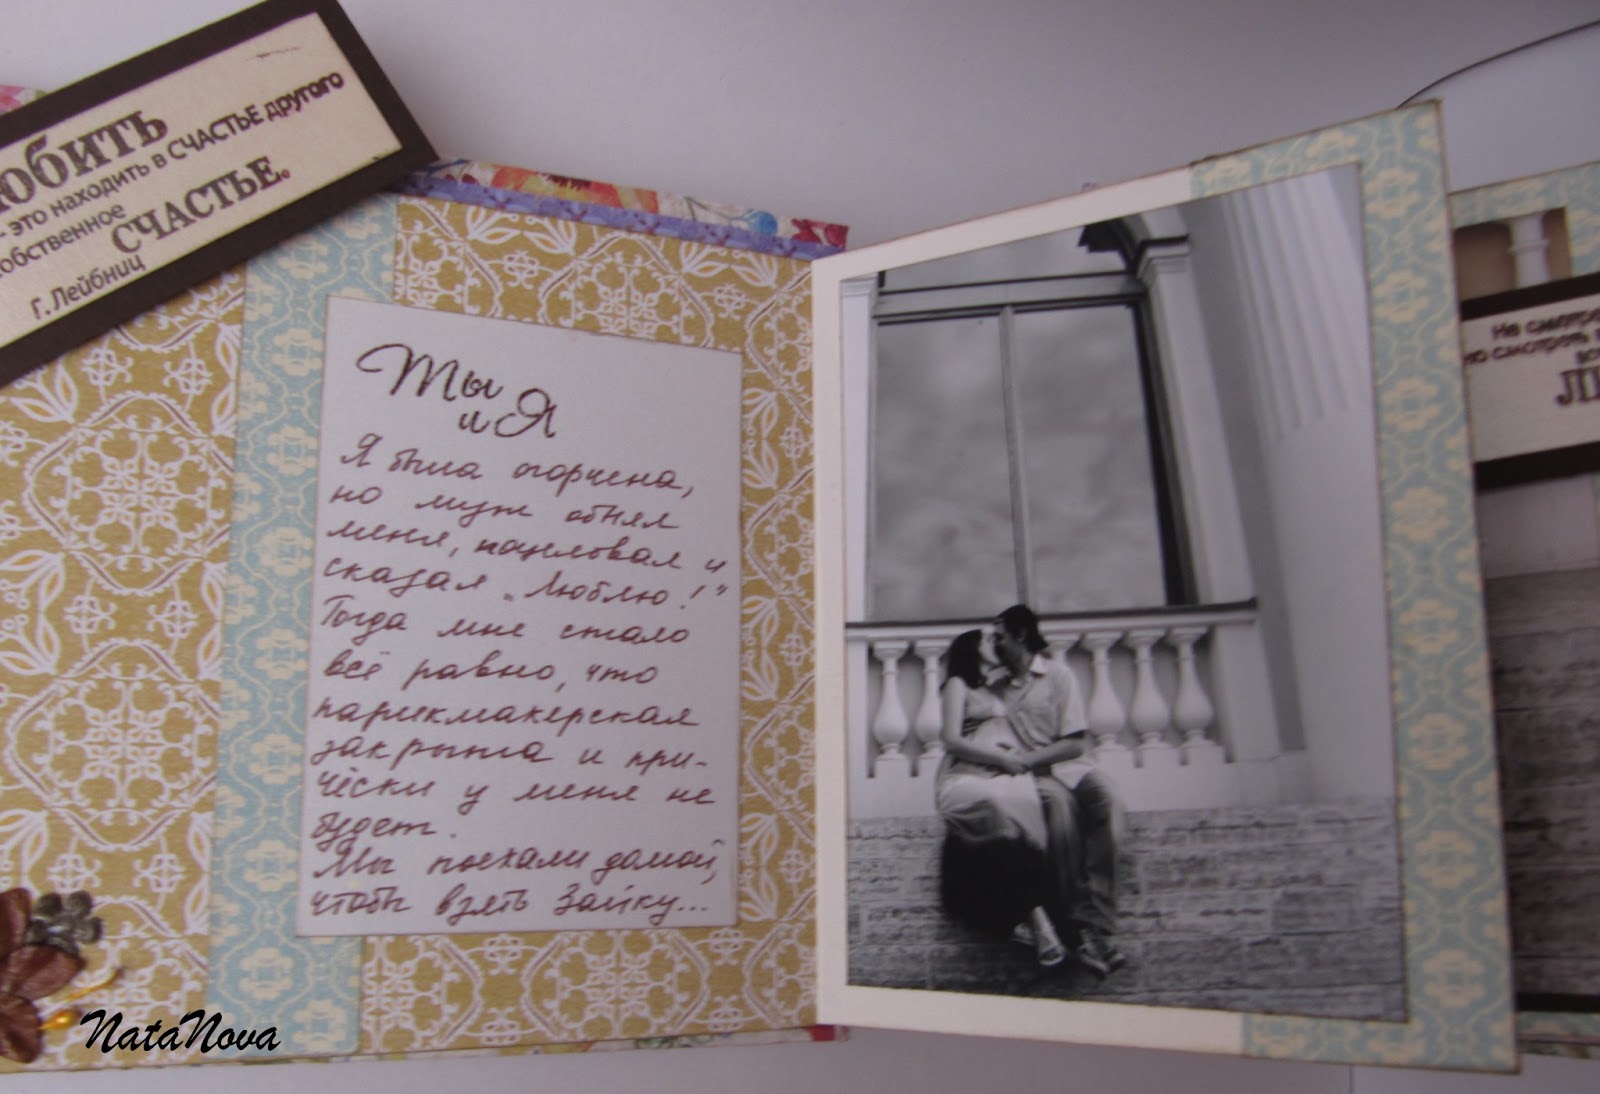 ЮБИТЬ
- это находить в СЧАСТЬЕ другого
собственное
СЧАСТЬЕ.
Г. Лейбниц
Ты
и Я
Я была огорчена,
но муж обнял
меня, поцеловал и
сказал „Люблю!"
Тогда мне стало
всё равно, что
парикмахерская
закрыта и при-
чёски у меня не
будет.
Мы поехали домой,
чтобы взять Зайку...
Не смотр
но смотреть
ЛЮ
NataNova